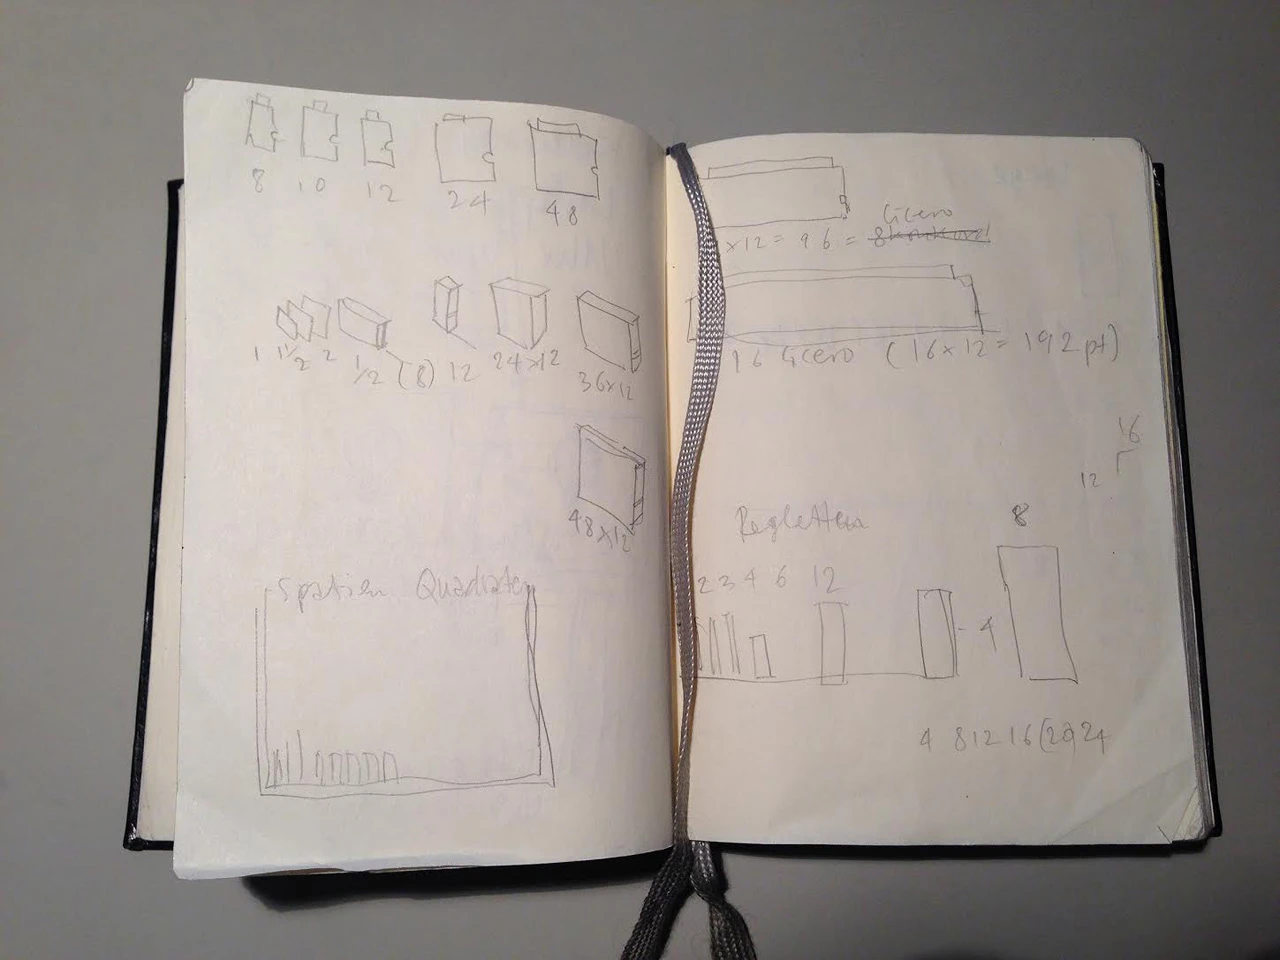 8 10 12 24 48
1 1½ 2 ½ (8) 12 24×12 36×12
48×12
Spatien Quadraten
Cicero
×12 = 96 = 8
16 Cicero (16×12 = 192 pt)
16
12
Regletten
8
2 3 4 6 12
4
4 8 12 16 (20) 24